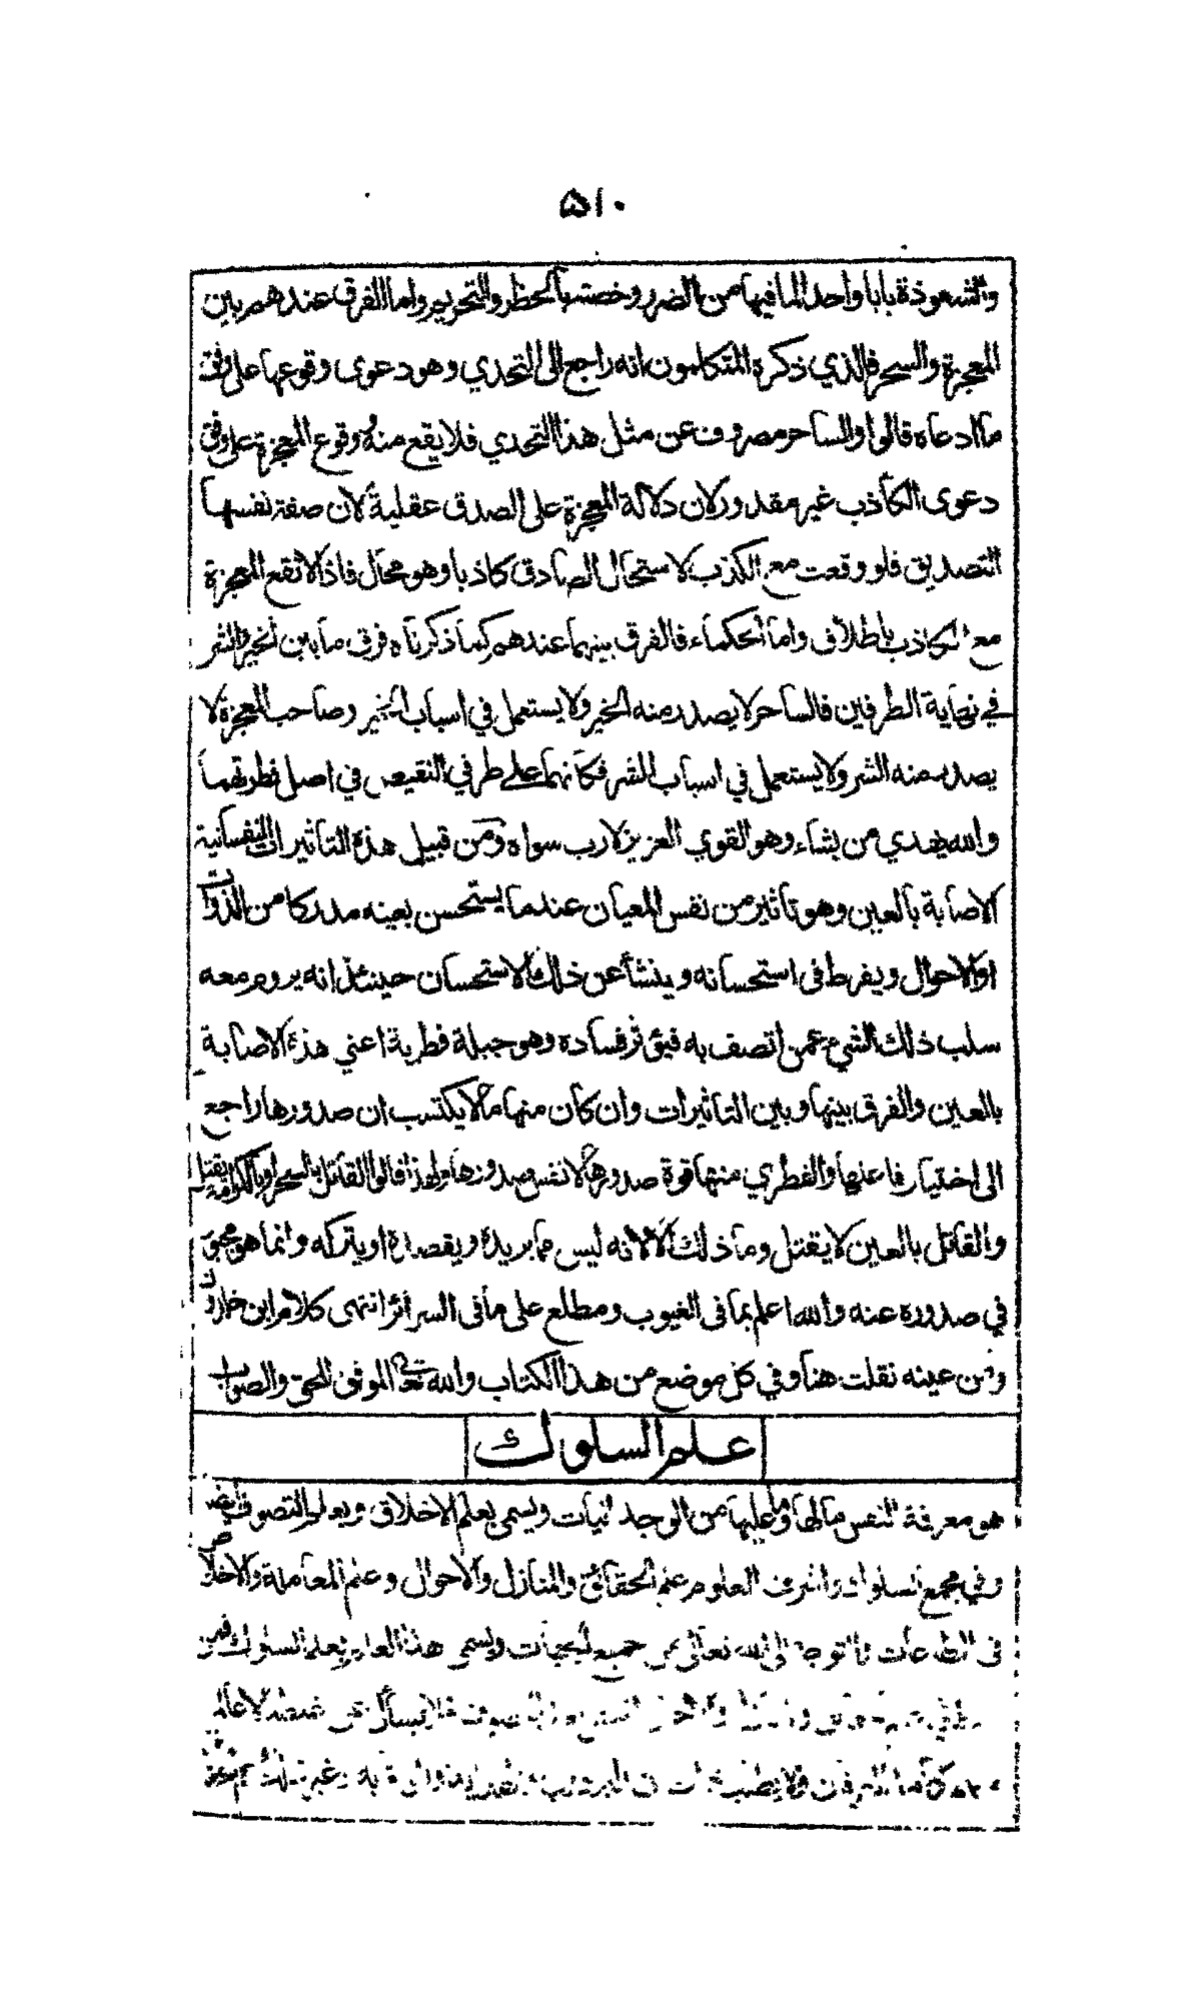 ۵۱۰
والشعوذة بابا واحدا لما فيها من الضرر وخصته بالحظر والتحريم واما الفرق عندهم بين
المعجزة والسحر فالذي ذكره المتكلمون انه راجع الى التحدي وهو دعوى وقوعها على وفق
ما ادعاه قالوا والساحر مصروف عن مثل هذا التحدي فلا يقع منه وقوع المعجزة على وفق
دعوى الكاذب غير مقدور لان دلالة المعجزة على الصدق عقلية لان صفة نفسها
التصديق فلو وقعت مع الكذب لاستحال الصادق كاذبا وهو محال فاذا لا تقع المعجزة
مع الكاذب باطلاق واما الحكماء فالفرق بينهما عندهم كما ذكرناه فرق ما بين الخير والشر
في نهاية الطرفين فالساحر لا يصدر منه الخير ولا يستعمل في اسباب الخير وصاحب المعجزة لا
يصدر منه الشر ولا يستعمل في اسباب الشر فكانهما على طرفي النقيض في اصل فطرتهما
والله يهدي من يشاء وهو القوي العزيز لا رب سواه ومن قبيل هذه التاثيرات النفسانية
الاصابة بالعين وهو تاثير من نفس المعيان عندما يستحسن بعينه مدركا من الذوات
او الاحوال ويفرط في استحسانه وينشأ عن ذلك الاستحسان حينئذ انه يروم معه
سلب ذلك الشيء عمن اتصف به فيؤثر فساده وهو جبلة فطرية اعني هذه الاصابة
بالعين والفرق بينها وبين التاثيرات وان كان منها ما لا يكتسب ان صدورها راجع
الى اختيار فاعلها والفطري منها قوة صدورها لا نفس صدورها ولهذا قالوا القاتل بالسحر او بالكرامة يقتل
والقاتل بالعين لا يقتل وما ذلك الا لانه ليس مما يريده ويقصده او يتركه وانما هو مجبور
في صدوره عنه والله اعلم بما في الغيوب ومطلع على ما في السرائر انتهى كلام ابن خلدون
ومن عينه نقلت هنا وفي كل موضع من هذا الكتاب والله تعالى الموفق للحق والصواب
علم السلوك
هو معرفة النفس ما لها وما عليها من الوجدانيات ويسمى بعلم الاخلاق وبعلم التصوف ايضا
وفي مجمع السلوك واشرف العلوم علم الحقائق والمنازل والاحوال وعلم المعاملة والاخلاص
في الطاعات والتوجه الى الله تعالى من جميع الجهات ويسمى هذا العلم بعلم السلوك فمن